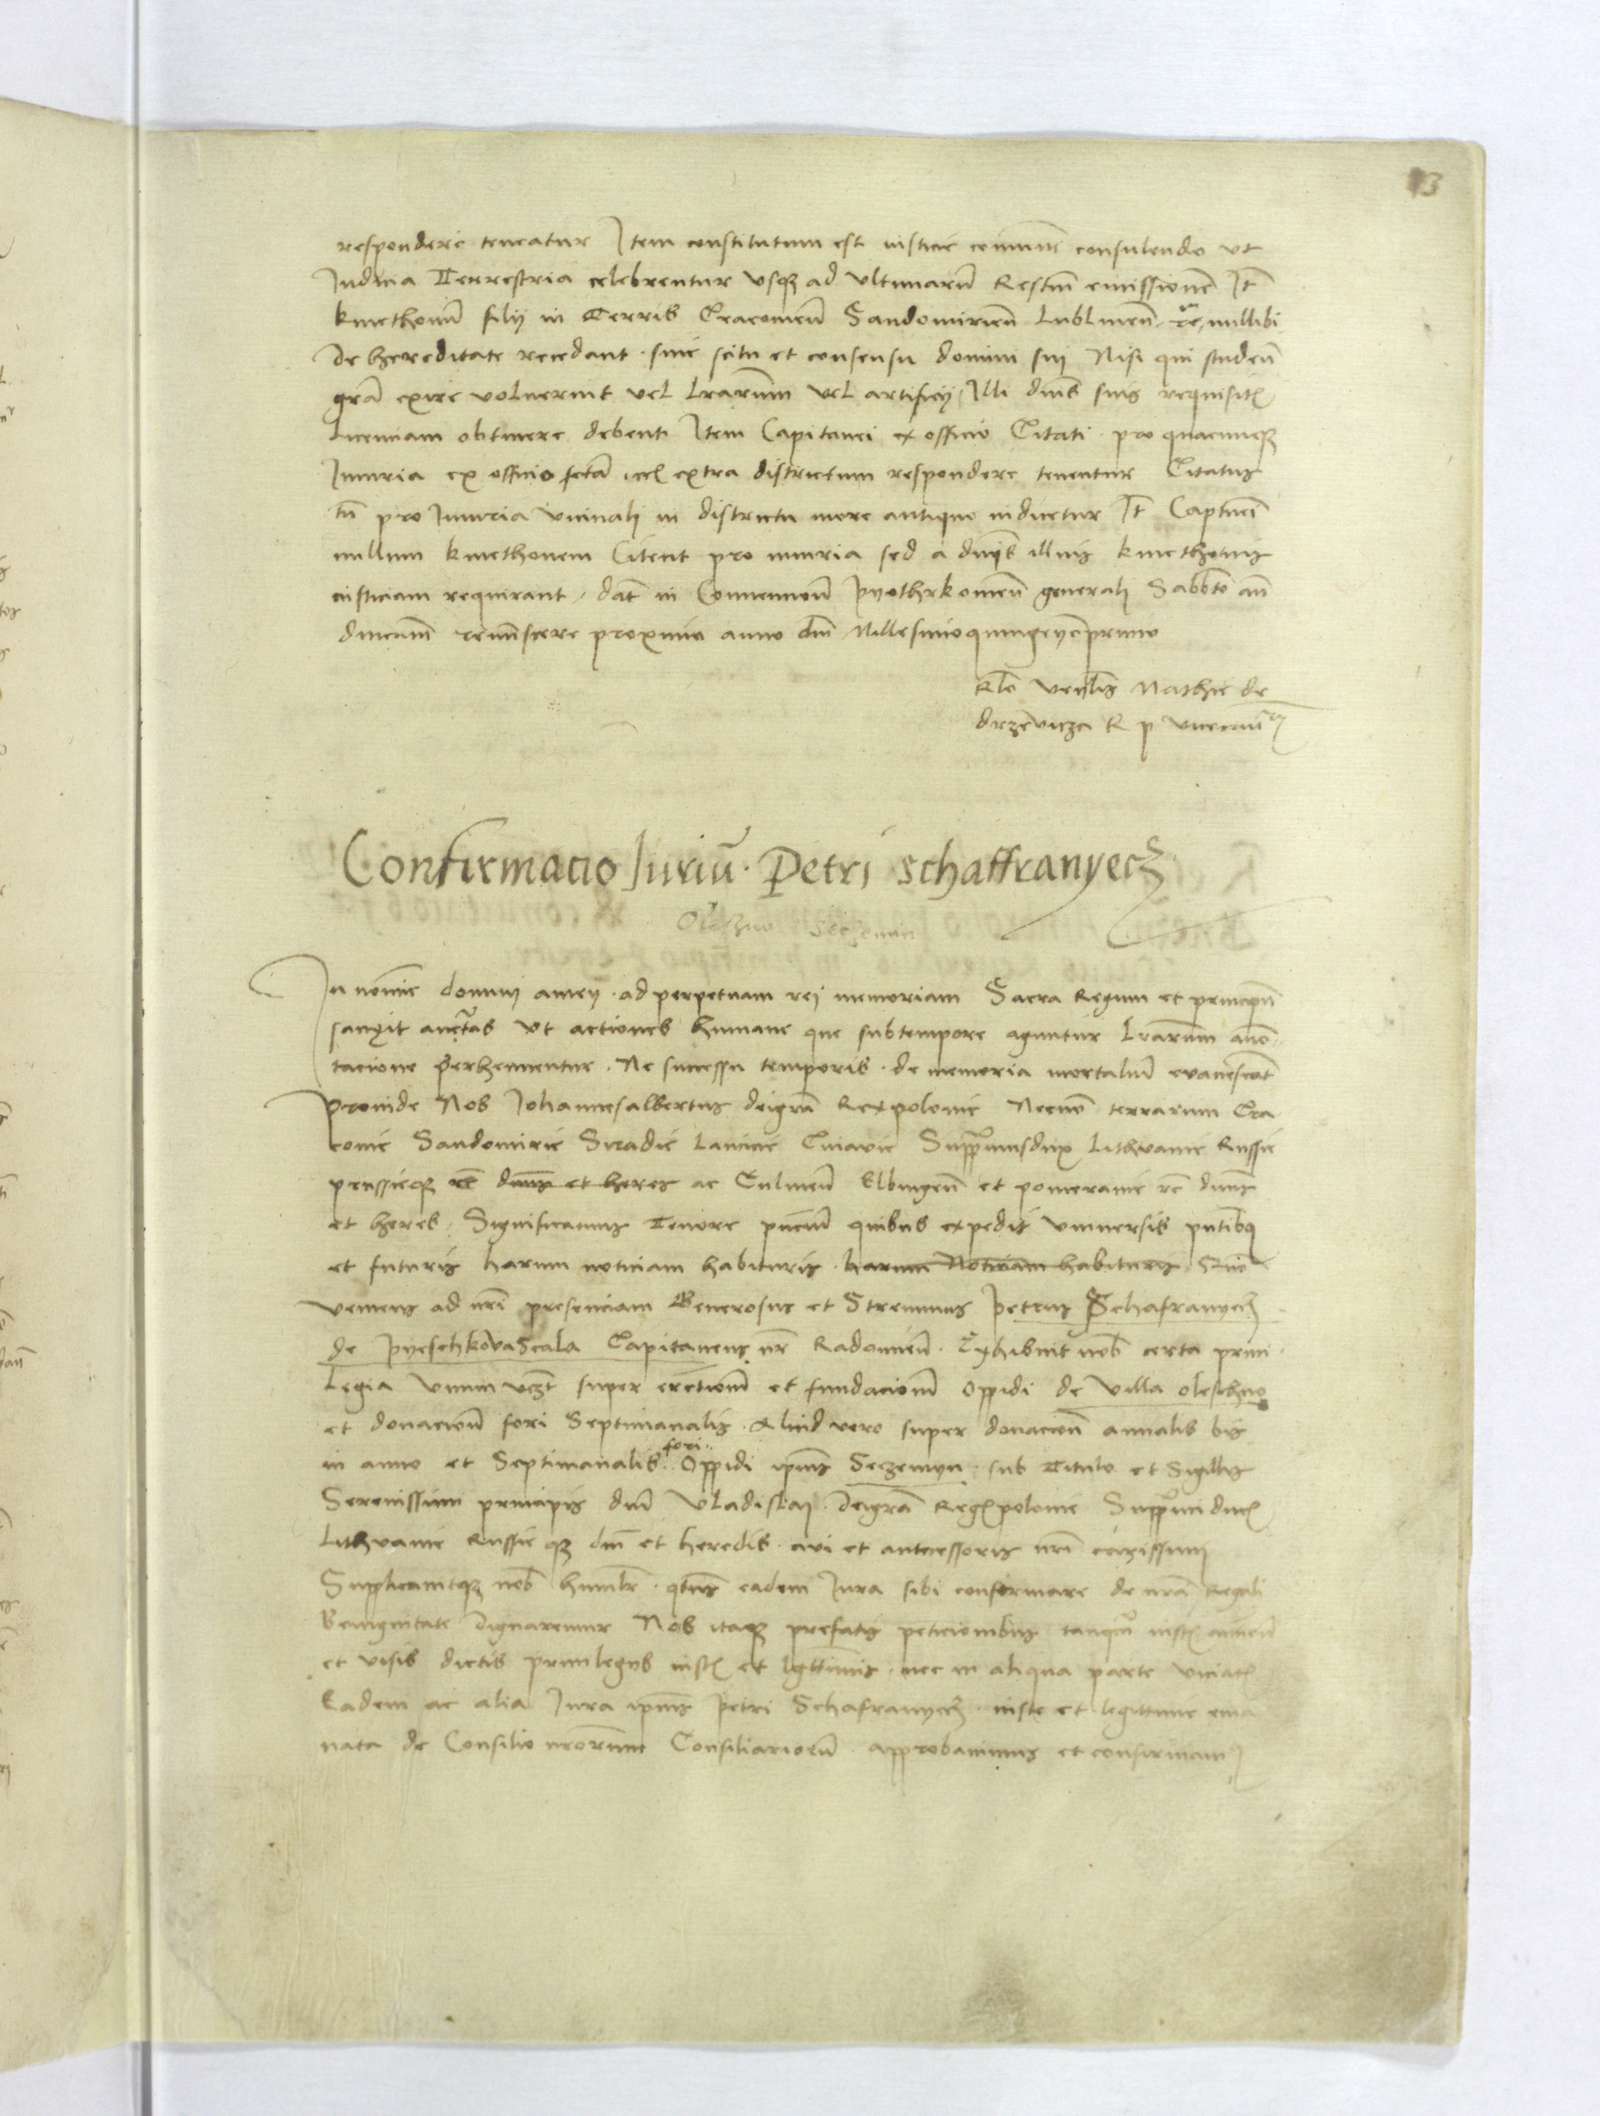 13
respondere teneatur Item constitutum est iusticie cōmuni consulendo ut
Iudicia Terrestria celebrentur usq₃ ad ultimarū Restiū emissionē Iꝉ
kmethonū filii in Terris Cracovieñ Sandomirieñ Lublineñ. nullibi
de hereditate recedant. sine scitu et consensu domini sui Nisi qui studeñ
grā exire voluerint vel lrarum vel artificij. Illi dnis suis requisitis
Licenciam obtinere debent Item Capitanei ex officio Citati pro quacunq₃
Iniuria ex officio extra districtum respondere tenentur Citatus
tñ pro Iniuria vicinali in districtu more antiquo iudicetur Iꝉ Captnei
nullum kmethonem Citent pro iniuria sed a dnis illius kmethonis
iusticiam requirant. dat in Convencioñ Pyothrkovieñ generali Sabbto añ
dnicam remiscere proximo anno dni Millesimoquingeñprimo
Rlo venlis Mathie de
drzevicza R p vicecan
Confirmacio Juriū. Petri Schaffranyecz
Oleschno Seczemin
In nomine domini amen. ad perpetuam rei memoriam Sacra Regum et principū
sanxit auctas ut actiones humane que subtempore aguntur lrarum anno
tacione perhennentur. Ne successu temporis. de memoria mortaliū evanescāt
Proinde Nos Johannesalbertus deigrā Rexpolonie Necnō terrarum Cra
covie Sandomirie Siradie Lancicie Cuiavie Supprmusdux Lithvanie Russie
prussieq₃ rc dnus et heres ac Culmeñ Elbingeñ et pomeranie rc dnus
et heres. Significamus Tenore pñciū quibus expedit vniuersis pntibq
et futuris harum noticiam habituris. harum Noticiam habituris Quō
veniens ad nrī presenciam Generosus et Strennuus Petrus Schafranyecz
de Pyeschkovascala Capitaneus nr Radomieñ. Exhibuit nob certa privi
Legia Vnum vczt super erectionē et fundacionē oppidi de villa oleschno
et donacionē fori Septimanalis. Aliud vero super donacionē annalis bis
in anno et Septimanalis fori Oppidi ipius Seczemyn. sub Titulo et Sigillis
Serenissimi principis dni Vladislai. Deigrā Regispolonie Supprmi ducis
Lithvanie Russieq₃ dni et heredis. avi et antecessoris nrī carissimi
Supplicauitq₃ nob humilr. qtus eadem Iura sibi confirmare de nrā Regali
Benignitate dignaremur Nos itaq₃ prefatis peticionibus tanq̄ iustis annueñ
et visis dictis priuilegys iustis et legittimis. nec in aliqua parte viciatis
Eadem ac alia Iura ipius Petri Schafranyecz. iuste et legittime ema
nata de Consilio nrorum Consiliariorū. approbauimus et confirmam